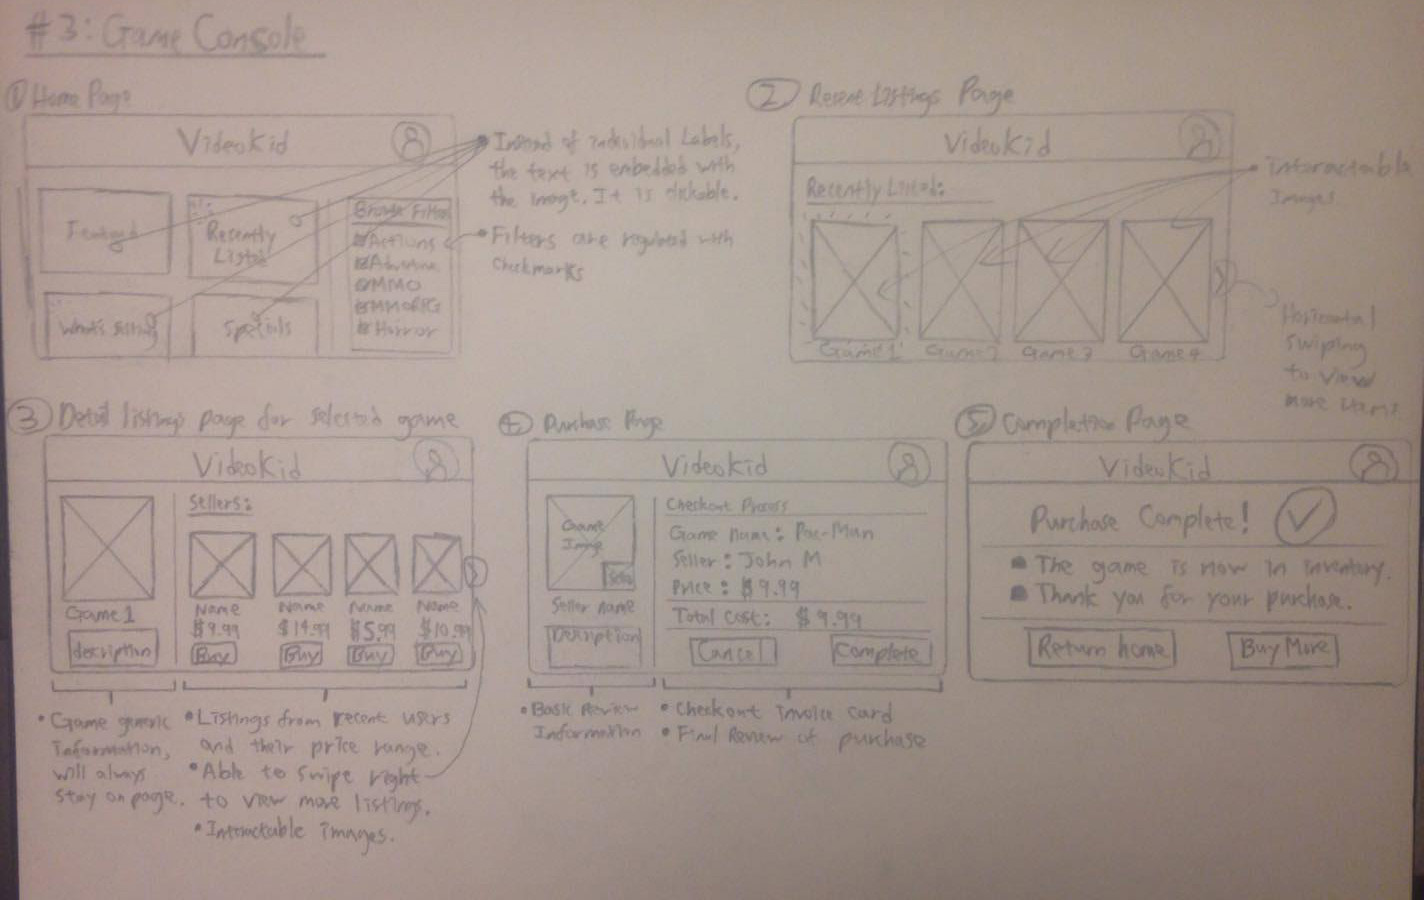 #3: Game Console
① Home Page
VideoKid
Featured
Recently
Listed
What's Selling
Specials
Browse Filter
Actions
Adventure
MMO
MMORPG
Horror
• Instead of individual Labels,
the text is embedded with
the image. It is clickable.
• Filters are regulated with
checkmarks
② Recent Listings Page
VideoKid
Recently Listed:
Game 1
Game 2
Game 3
Game 4
• interactable
Images
Horizontal
swiping
to view
more items
③ Detail listings page for selected game
VideoKid
Game 1
description
Sellers:
Name Name Name Name
$9.99 $14.99 $5.99 $10.99
Buy Buy Buy Buy
• Game generic
information,
will always
stay on page.
• Listings from recent users
and their price range.
• Able to swipe right
to view more listings.
• Interactable images.
④ Purchase Page
VideoKid
Game
Image
Seller name
Decription
Checkout Process
Game name: Pac-Man
Seller: John M
Price: $9.99
Total Cost: $9.99
Cancel
Complete
• Basic Review
Information
• Checkout invoice card
• Final Review of purchase
⑤ Completion Page
VideoKid
Purchase Complete!
The game is now in inventory.
Thank you for your purchase.
Return home
Buy More